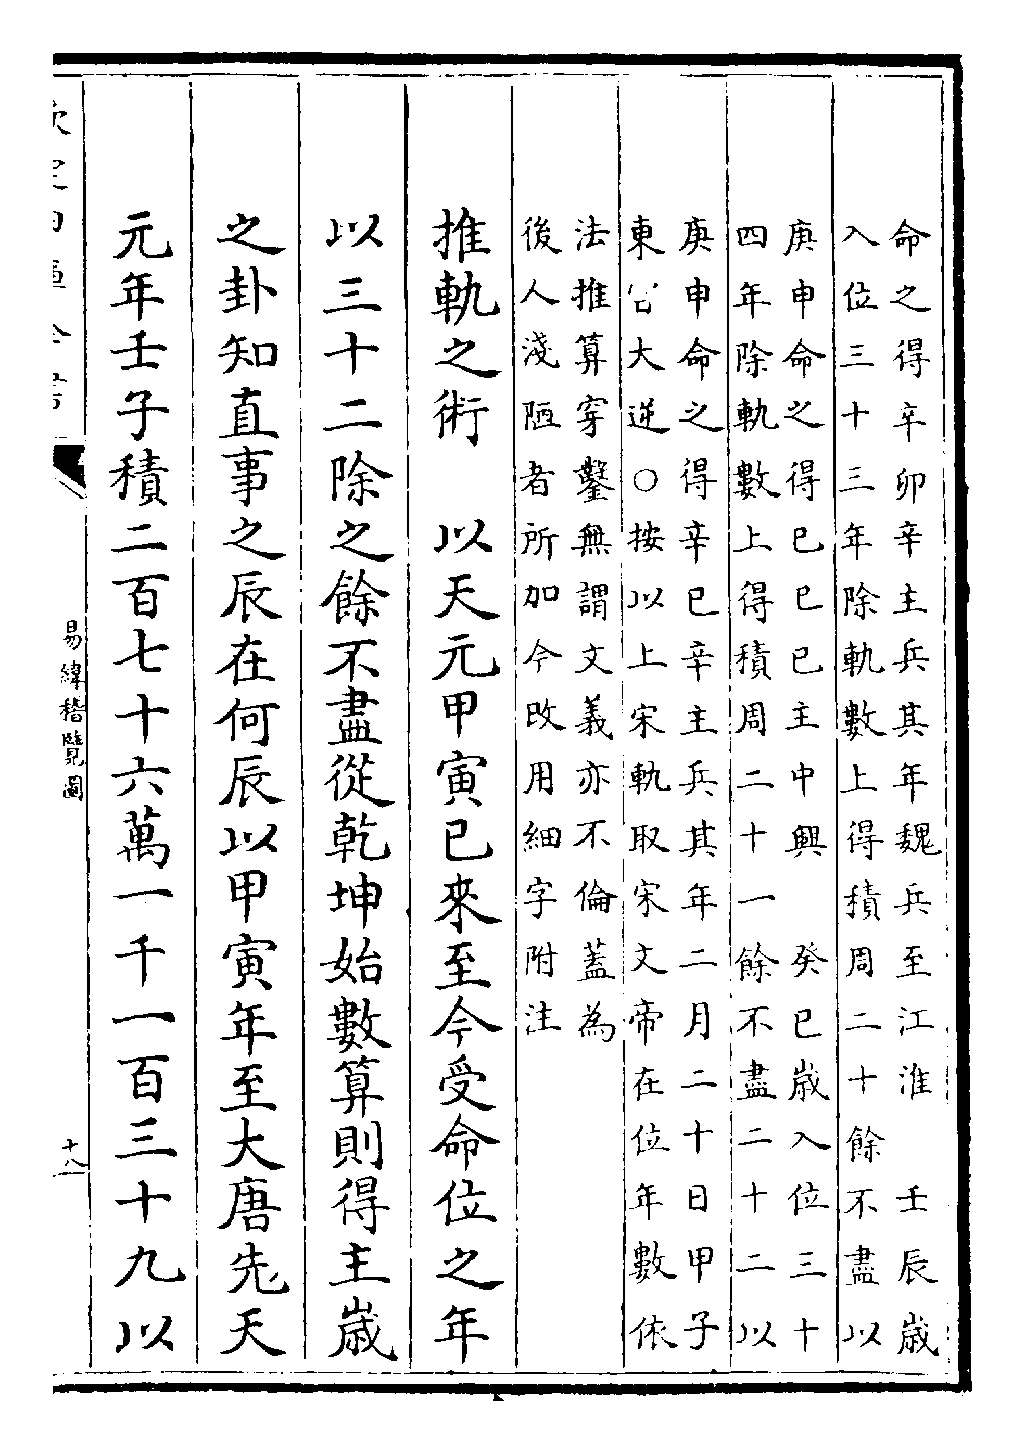 命之得辛卯辛主兵其年魏兵至江淮　壬辰歲
入位三十三年除軌數上得積周二十餘不盡以
庚申命之得巳巳巳主中興　癸巳歲入位三十
四年除軌數上得積周二十一餘不盡二十二以
庚申命之得辛巳辛主兵其年二月二十日甲子
東宮大逆○按以上宋軌取宋文帝在位年數依
法推算穿鑿無謂文義亦不倫蓋為
後人淺陋者所加今改用細字附注
推軌之術　以天元甲寅已來至今受命位之年
以三十二除之餘不盡從乾坤始數算則得主歲
之卦知直事之辰在何辰以甲寅年至大唐先天
元年壬子積二百七十六萬一千一百三十九以
易緯稽覽圖
十八